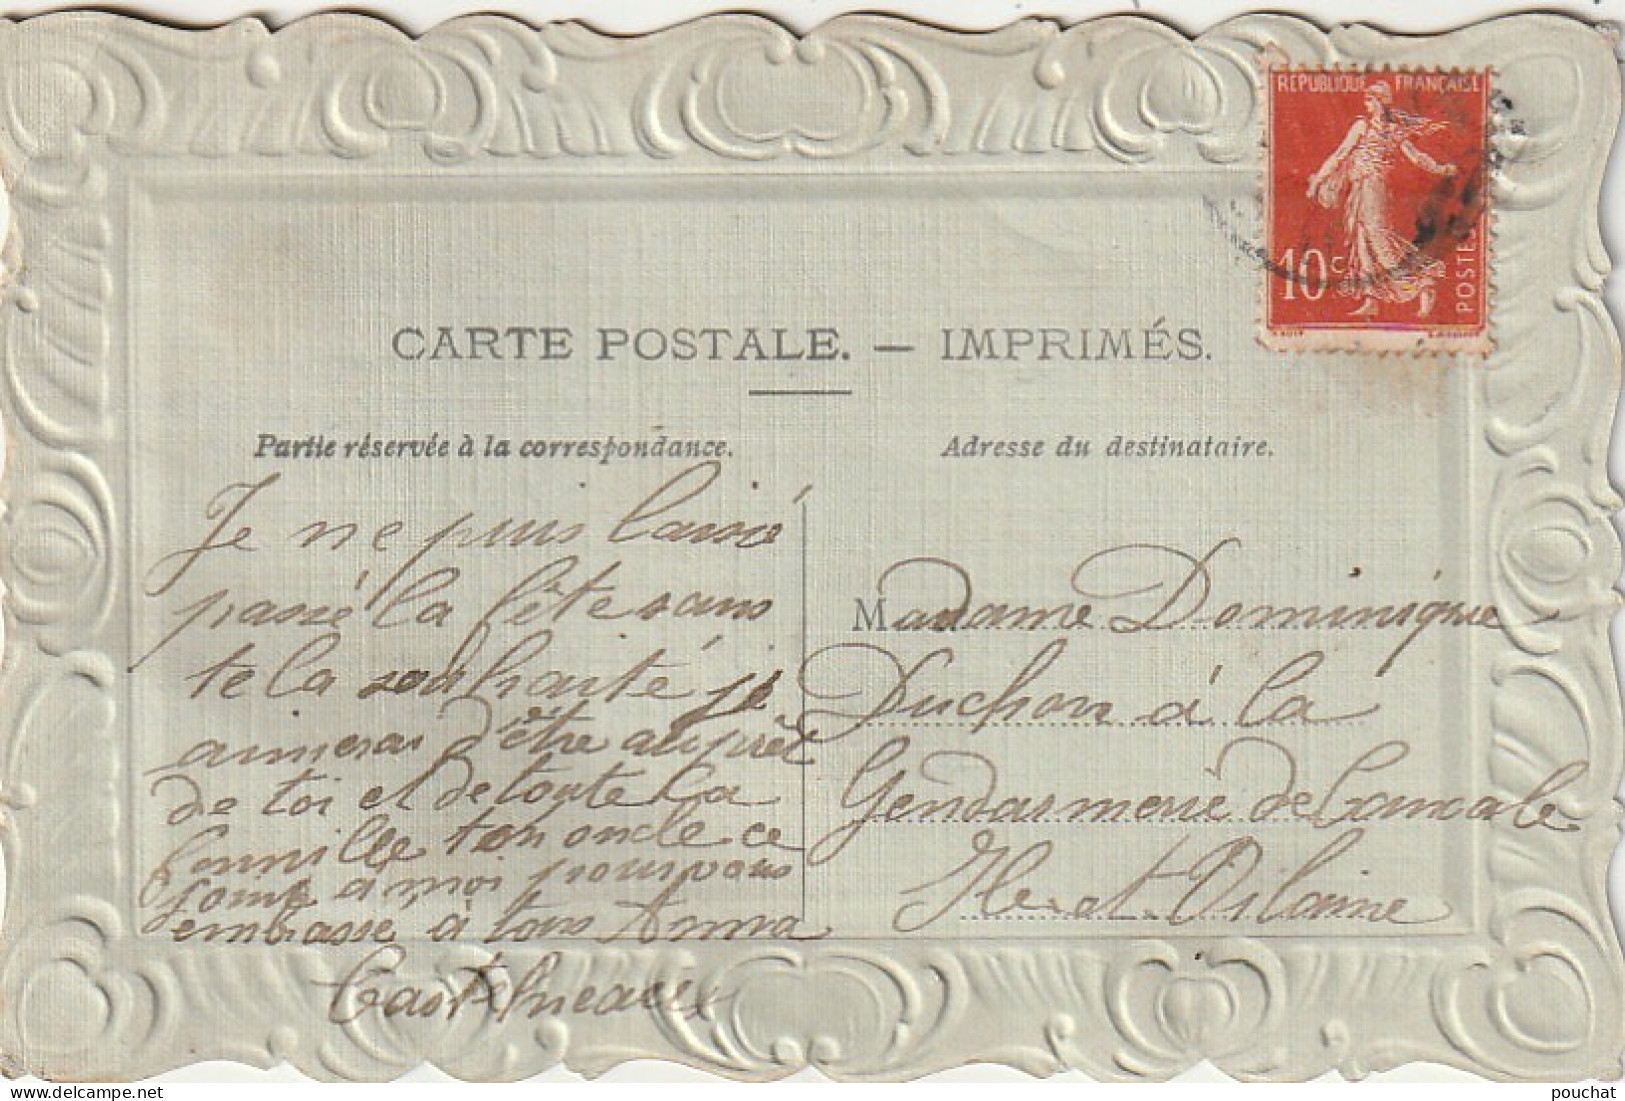 REPUBLIQUE FRANÇAISE
10 c
POSTES
CARTE POSTALE. — IMPRIMÉS.
Partie réservée à la correspondance.
Je ne puis laissé
passé la fête sans
te la souhaité je
aimerai d'être auprès
de toi et de toute la
famille ton oncle ce
joint à moi pour vous
embrassé à tous Anna
Adresse du destinataire.
Madame Dominique
Duchon à la
Gendarmerie de Cancale
Ile et Vilaine
pouchat
Copyright delcampe.net